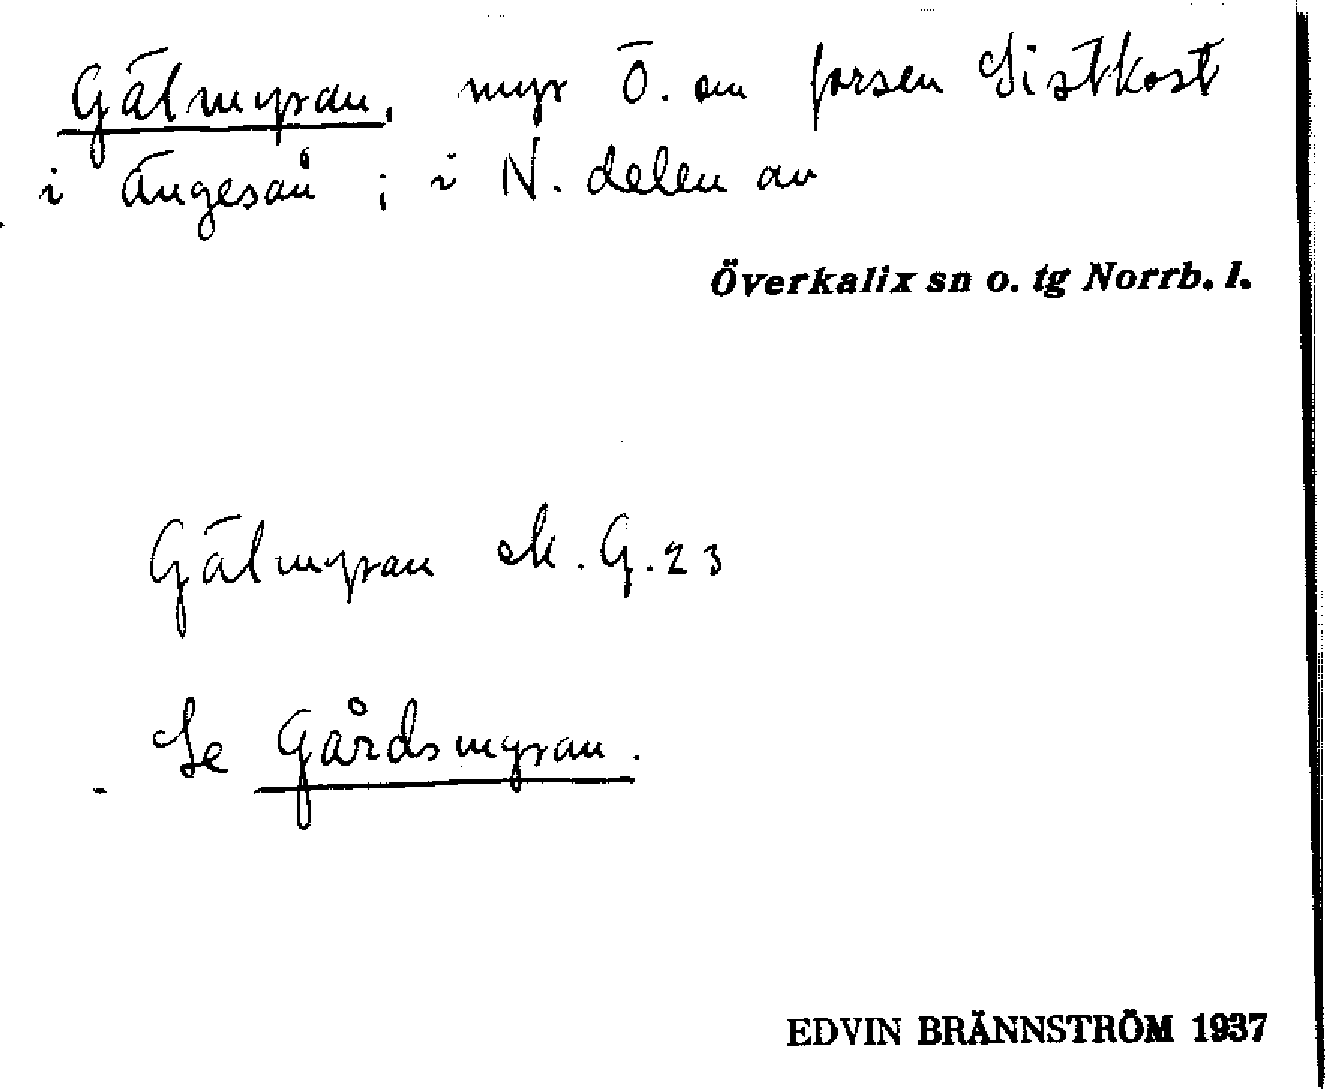 Gälmyran, myr Ö. om forsen Sistkost
i Ängesån ; i N. delen av
Överkalix sn o. tg Norrb. l.
Gälmyran ek. G. 23
Se Gårdsmyran.
EDVIN BRÄNNSTRÖM 1937